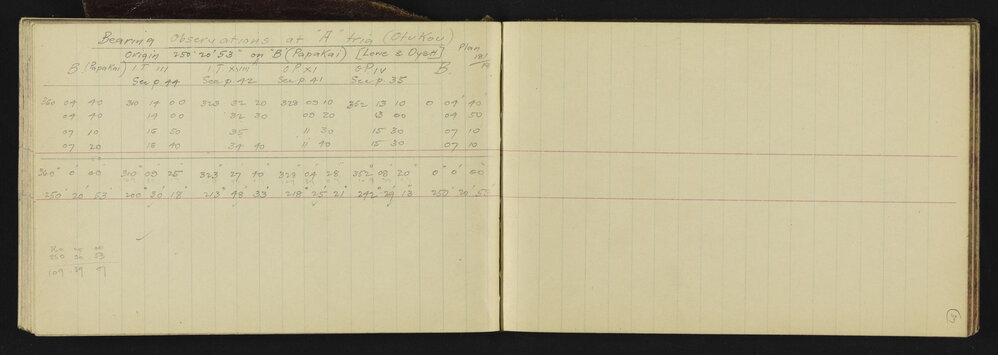 Bearing Observations at "A" trig (Otukou)
Origin 250° 20' 53" on "B" (Papakai) [Lowe & Dyett] Plan
B. (Papakai) I.T. III I.T. XVIII O.P. XI O.P. IV B.
See p. 44 See p. 42 See p. 41 See p. 35
360 04 40 310 14 00 323 32 20 328 09 10 352 13 10 0 04' 40"
04 40 14 00 32 30 09 20 13 00 04 50
07 10 16 50 35 11 30 15 30 07 10
07 20 16 40 34 40 11 40 15 30 07 10
360° 0' 00" 310° 09' 25" 323° 27' 40" 328° 04' 28" 352° 08' 20" 0° 0' 00"
250° 20' 53" 200° 30' 18" 213° 48' 33" 218° 25' 21" 242° 29' 13" 250° 20'
250 20 53
109 39